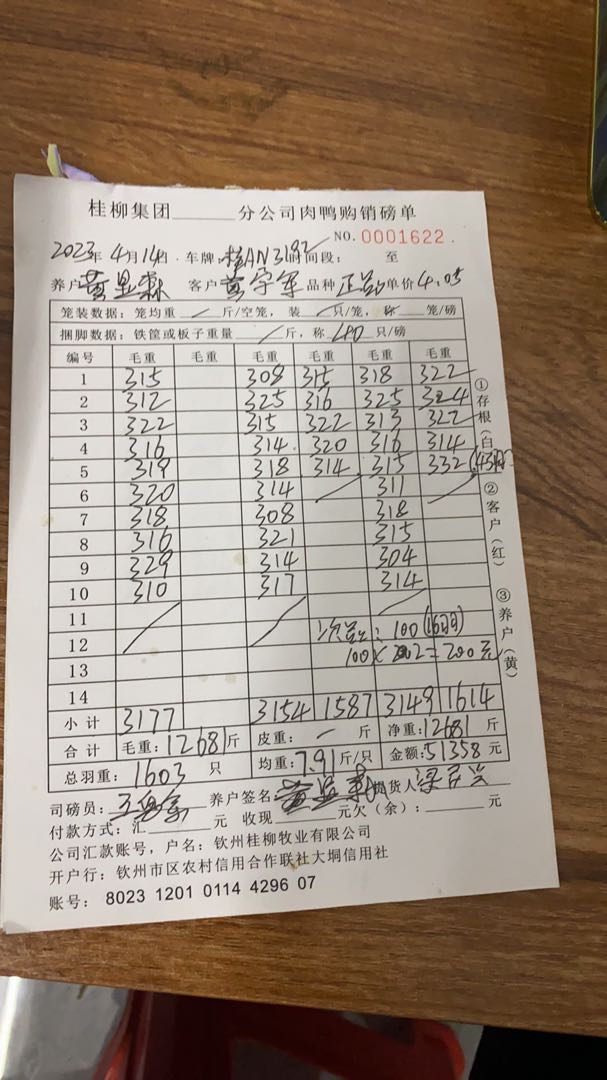 桂柳集团______分公司肉鸭购销磅单
NO. 0001622
2023年4月14日 车牌:桂AN3192 时间段: 至
养户 黄显森 客户 黄宇军 品种 正品 单价 4.05
笼装数据:笼均重 / 斤/空笼,装 / 只/笼,称 笼/磅
捆脚数据:铁筐或板子重量 / 斤,称 40 只/磅
编号 毛重 毛重 毛重 毛重 毛重 毛重
1 315 308 315 318 322
2 312 325 316 325 324
3 322 315 322 313 322
4 316 314 320 316 314
5 319 318 314 315 332 (43只)
6 320 314 311
7 318 308 318
8 316 321 315
9 329 314 304
10 310 317 314
11
12 次品: 100 (16只)
13 100×2=200元
14
小计 3177 3154 1587 3149 1614
合计 毛重:12681斤 皮重: — 斤 净重:12681 斤
总羽重: 1603 只 均重:7.91 斤/只 金额:51358 元
司磅员: 养户签名 黄显森 购货人
付款方式:汇______元 收现______元欠(余):______元
公司汇款账号,户名:钦州桂柳牧业有限公司
开户行:钦州市区农村信用合作联社大垌信用社
账号: 8023 1201 0114 4296 07
①存根(白)
②客户(红)
③养户(黄)